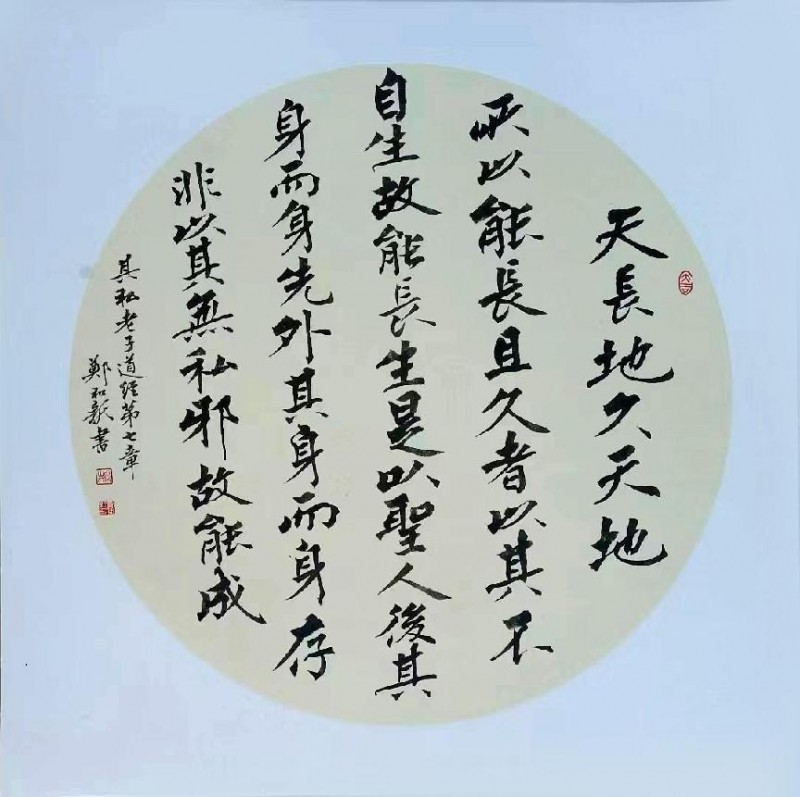 天長地久天地
所以能長且久者以其不
自生故能長生是以聖人後其
身而身先外其身而身存
非以其無私邪故能成
其私老子道經第七章
鄭和新書